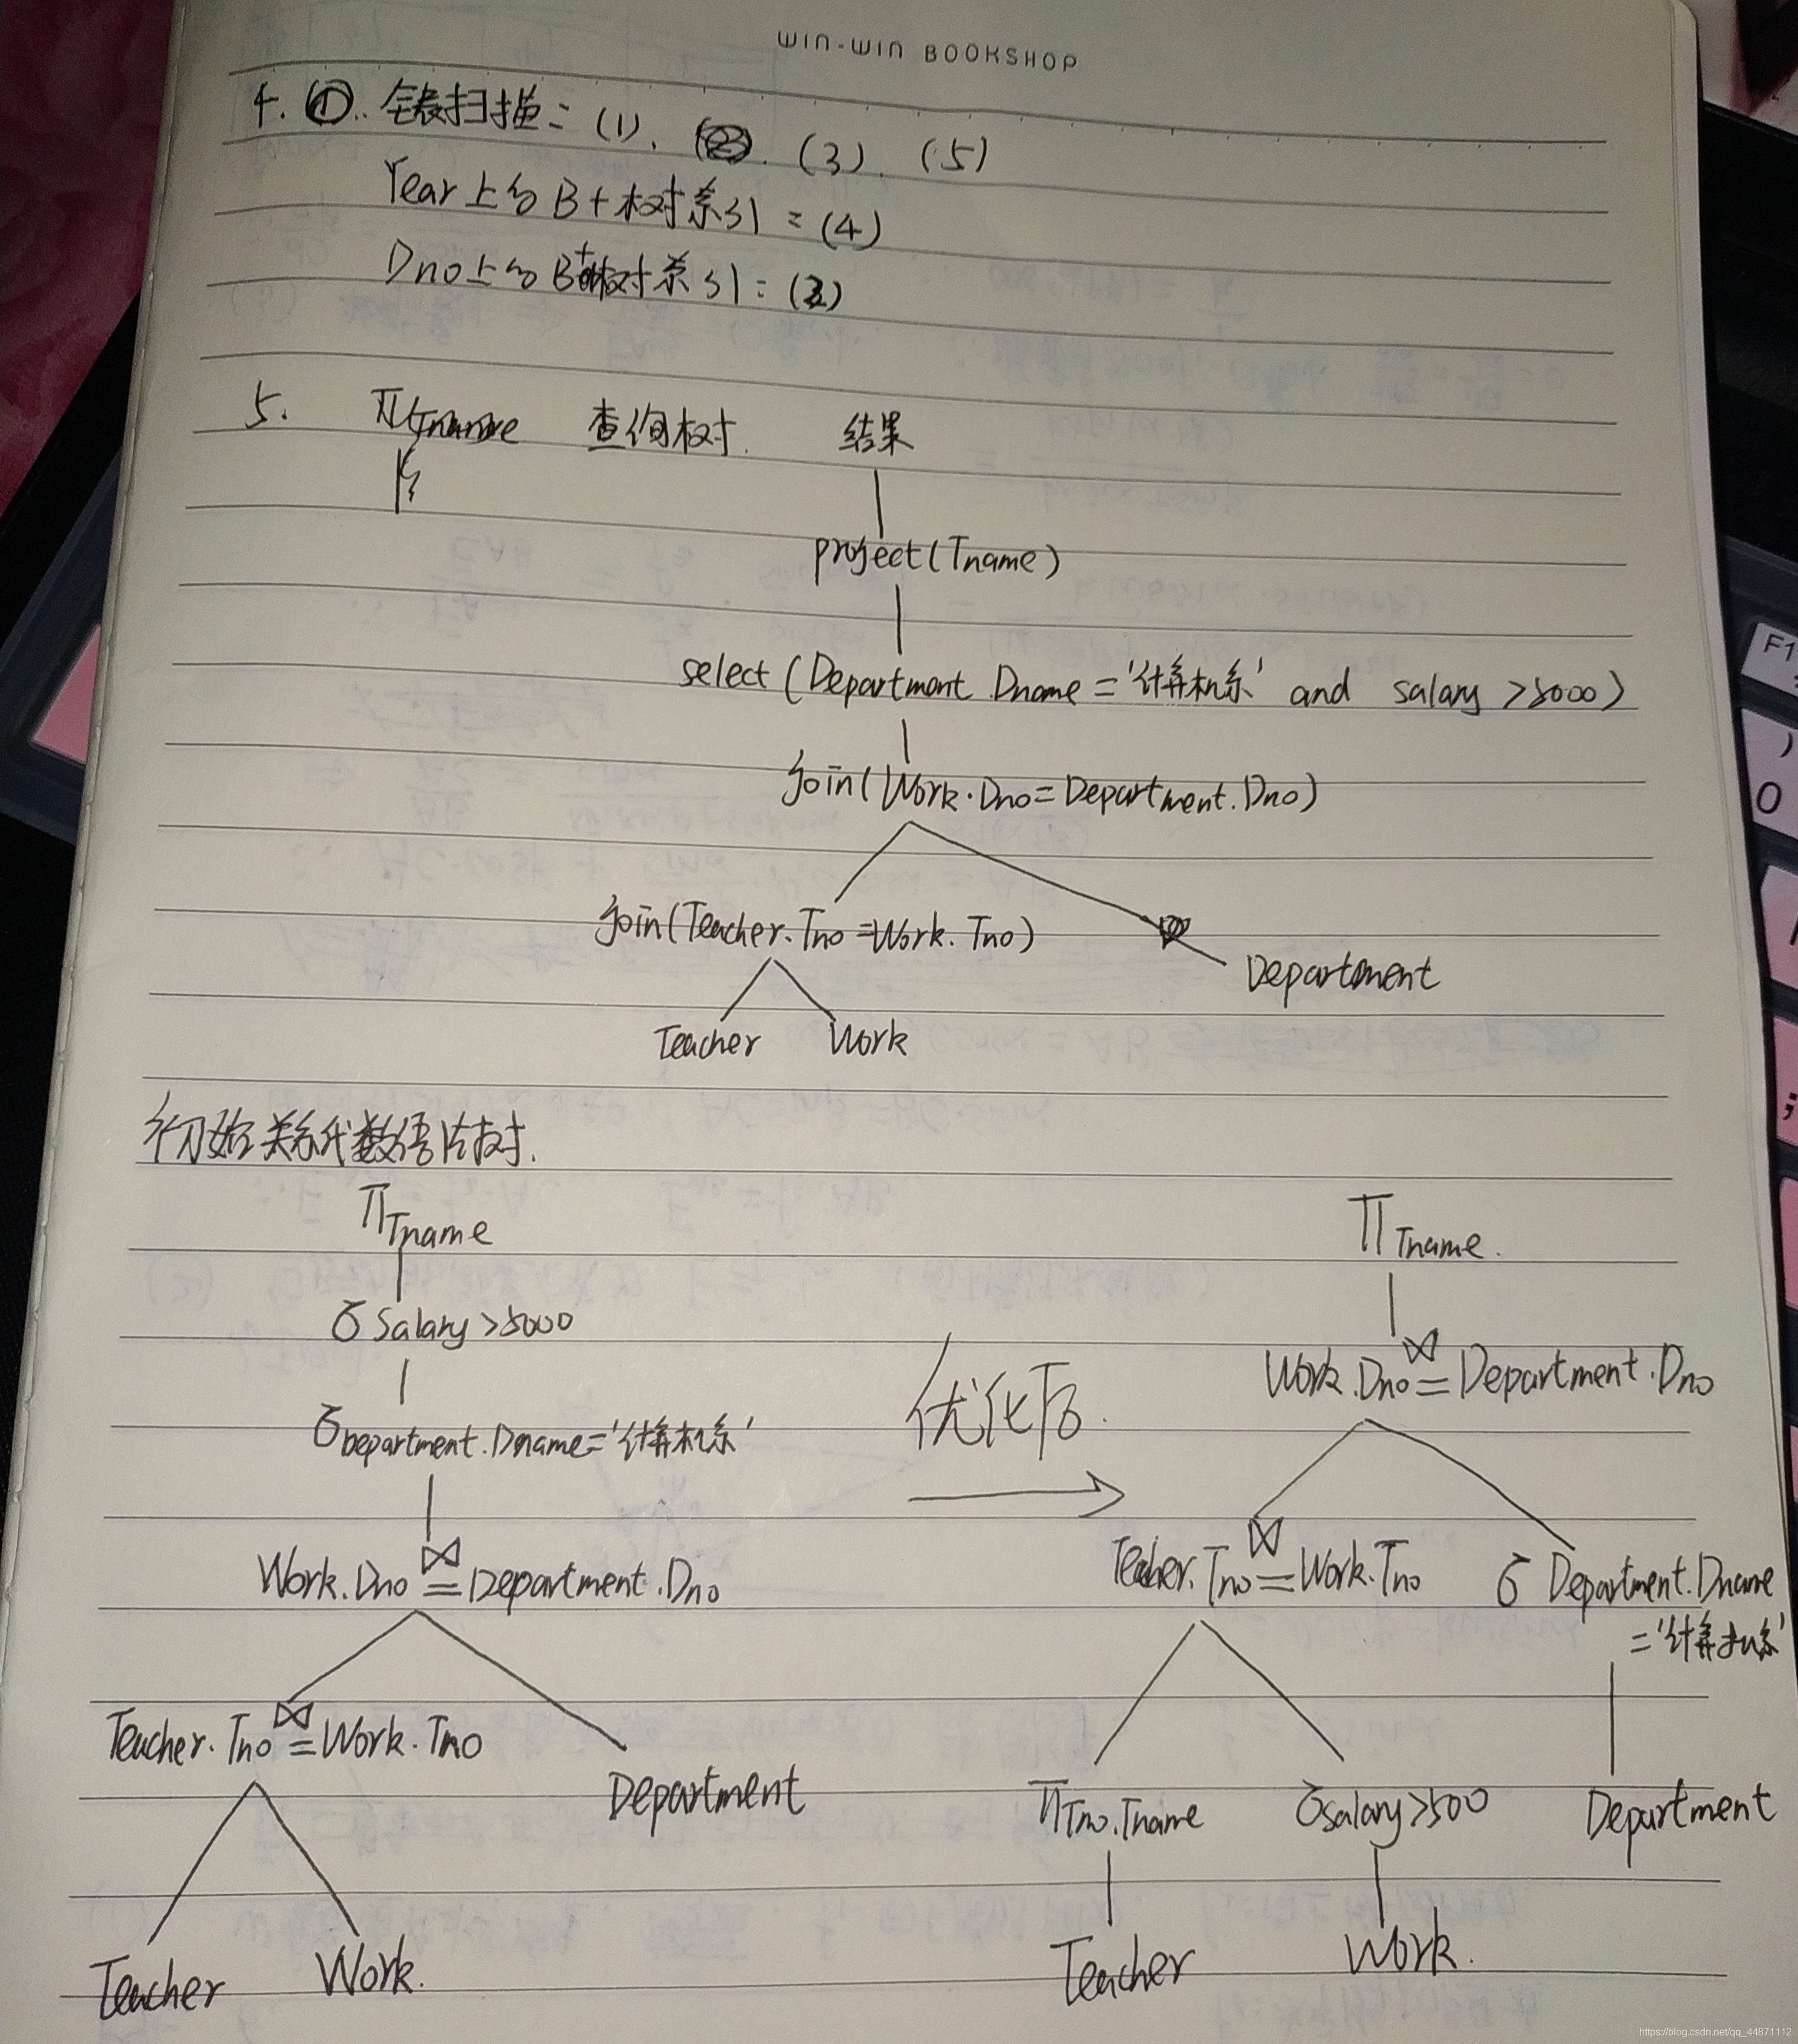 WIN-WIN BOOKSHOP
4. ①. 全表扫描: (1). (3). (5)
Year上的B+树索引: (4)
Dno上的B+树索引: (2)
5. 查询树. 结果
project(Tname)
select(Department.Dname='计算机系' and salary>5000)
join(Work.Dno=Department.Dno)
join(Teacher.Tno=Work.Tno)
Department
Teacher Work
初始关系代数语法树.
π Tname
σ Salary>5000
σ Department.Dname='计算机系'
⋈
Work.Dno=Department.Dno
⋈
Teacher.Tno=Work.Tno
Department
Teacher Work.
优化后.
π Tname.
⋈
Work.Dno=Department.Dno
⋈
Teacher.Tno=Work.Tno σ Department.Dname
='计算机系'
π Tno.Tname σ salary>500 Department
Teacher Work.
F1
)
0
;
https://blog.csdn.net/qq_44871112